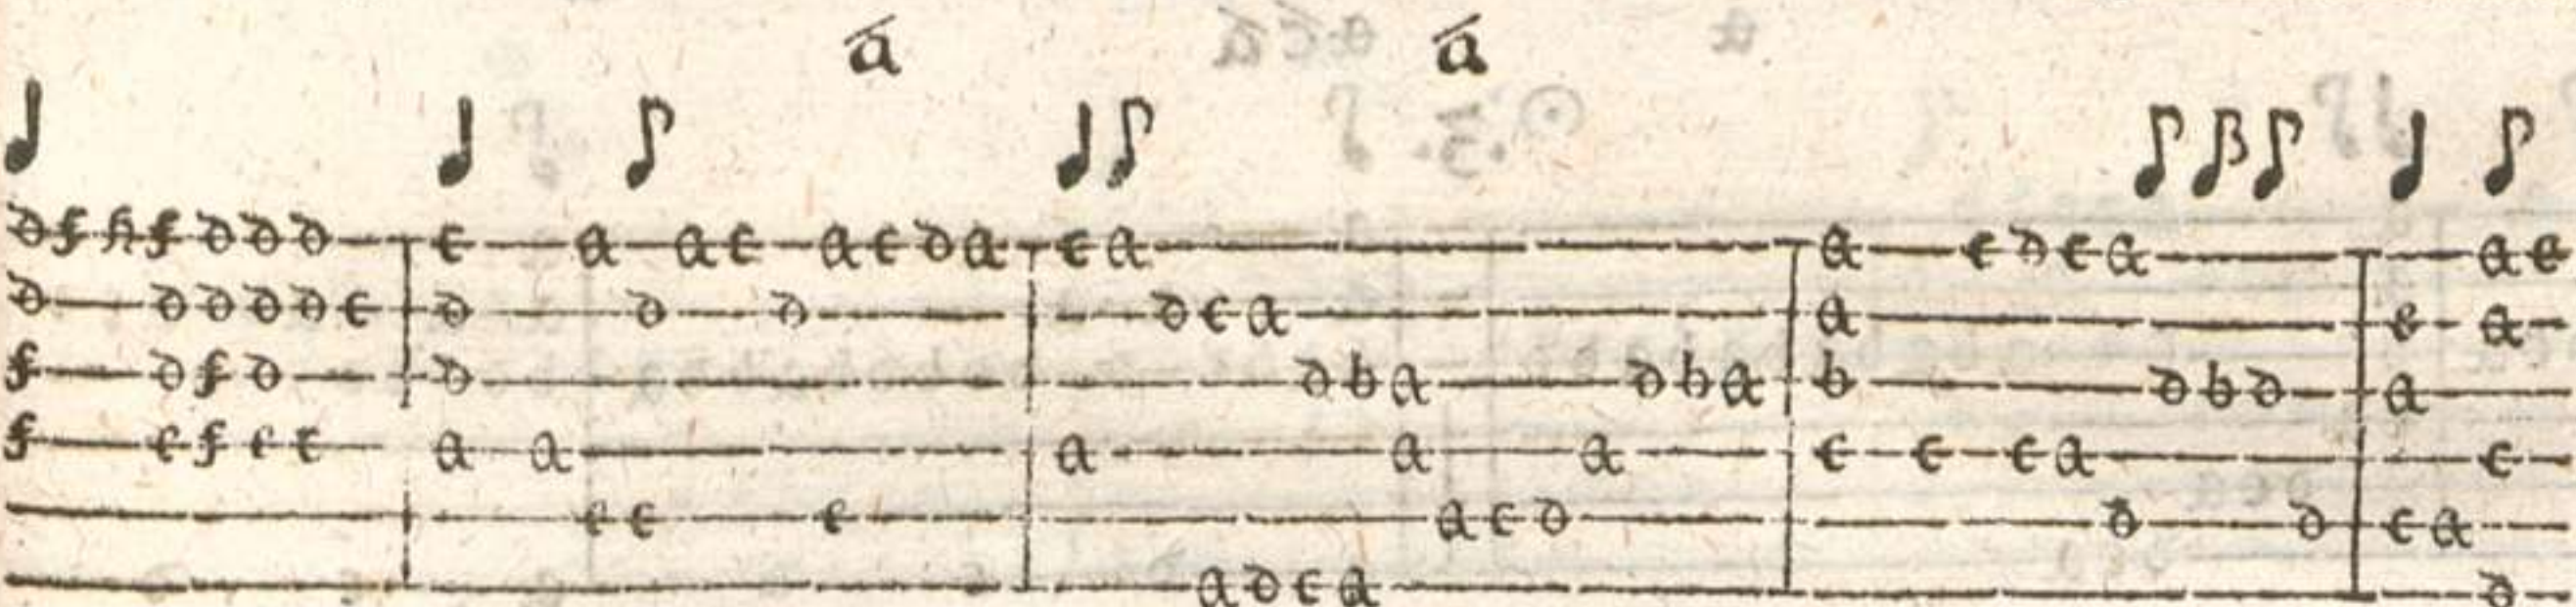 á á
d f h f d d d c a a c a c d a c a a c d c a a c
d d d d d c d d d d c a a c a
f d f d d d b a d b a b d b d a
f c f c c a a a a a c c c a c
c c c a c d d d c a
a d c a d